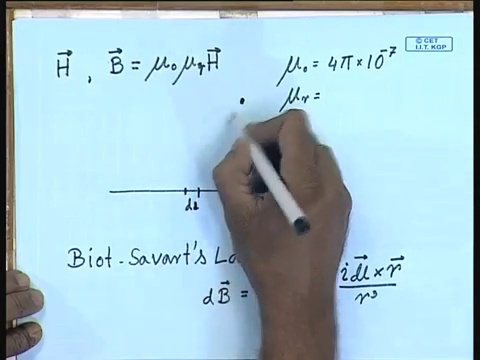 © CET
I.I.T. KGP
H⃗ , B⃗ = μ₀ μᵣ H⃗
μ₀ = 4π × 10⁻⁷
μᵣ =
dl
Biot-Savart's
dB⃗ = i dl⃗ × r⃗ / r³